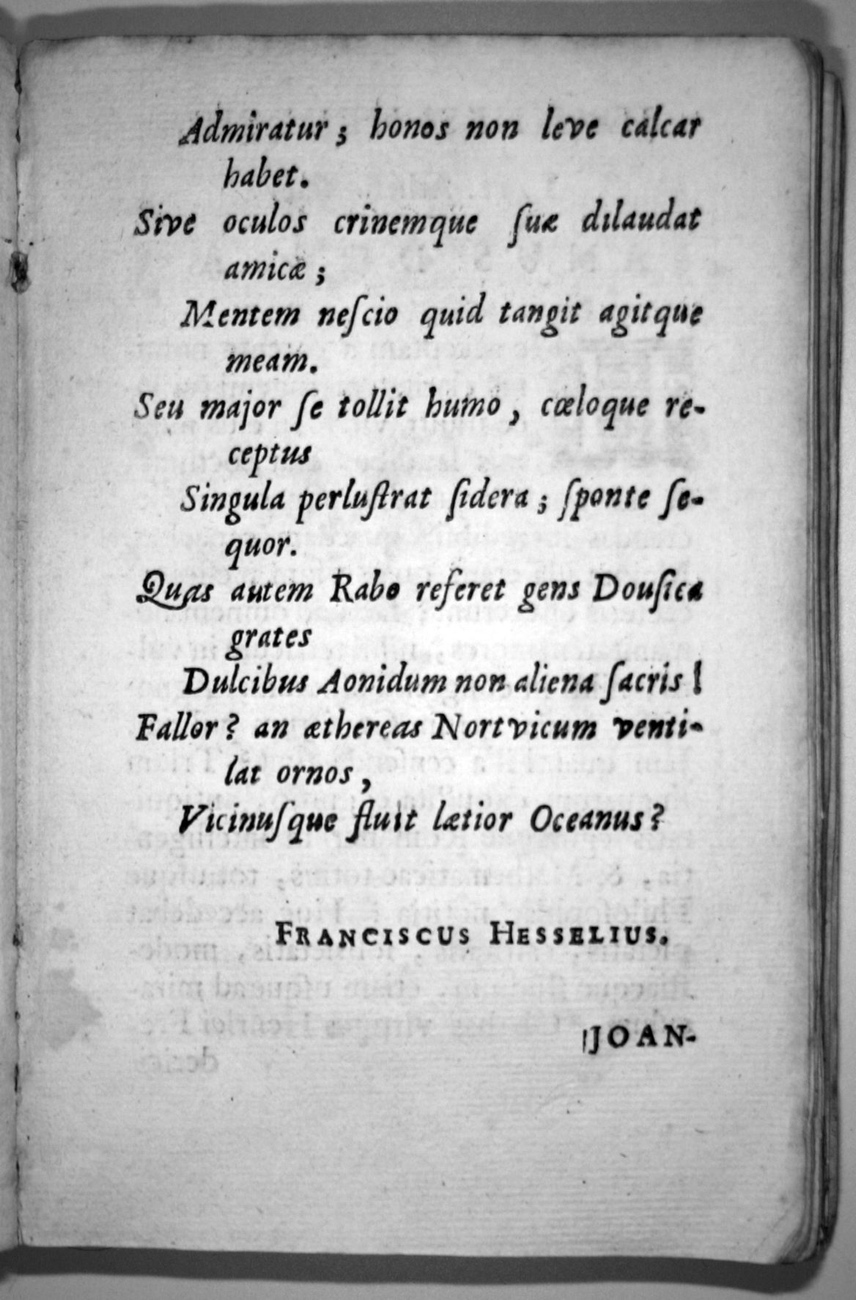 Admiratur ; honos non leve calcar
habet.
Sive oculos crinemque ſuæ dilaudat
amicæ ;
Mentem neſcio quid tangit agitque
meam.
Seu major ſe tollit humo , cœloque re-
ceptus
Singula perluſtrat ſidera ; ſponte ſe-
quor.
Quas autem Rabo referet gens Douſica
grates
Dulcibus Aonidum non aliena ſacris !
Fallor ? an æthereas Nortvicum venti-
lat ornos ,
Vicinuſque fluit lætior Oceanus ?
FRANCISCUS HESSELIUS.
JOAN-